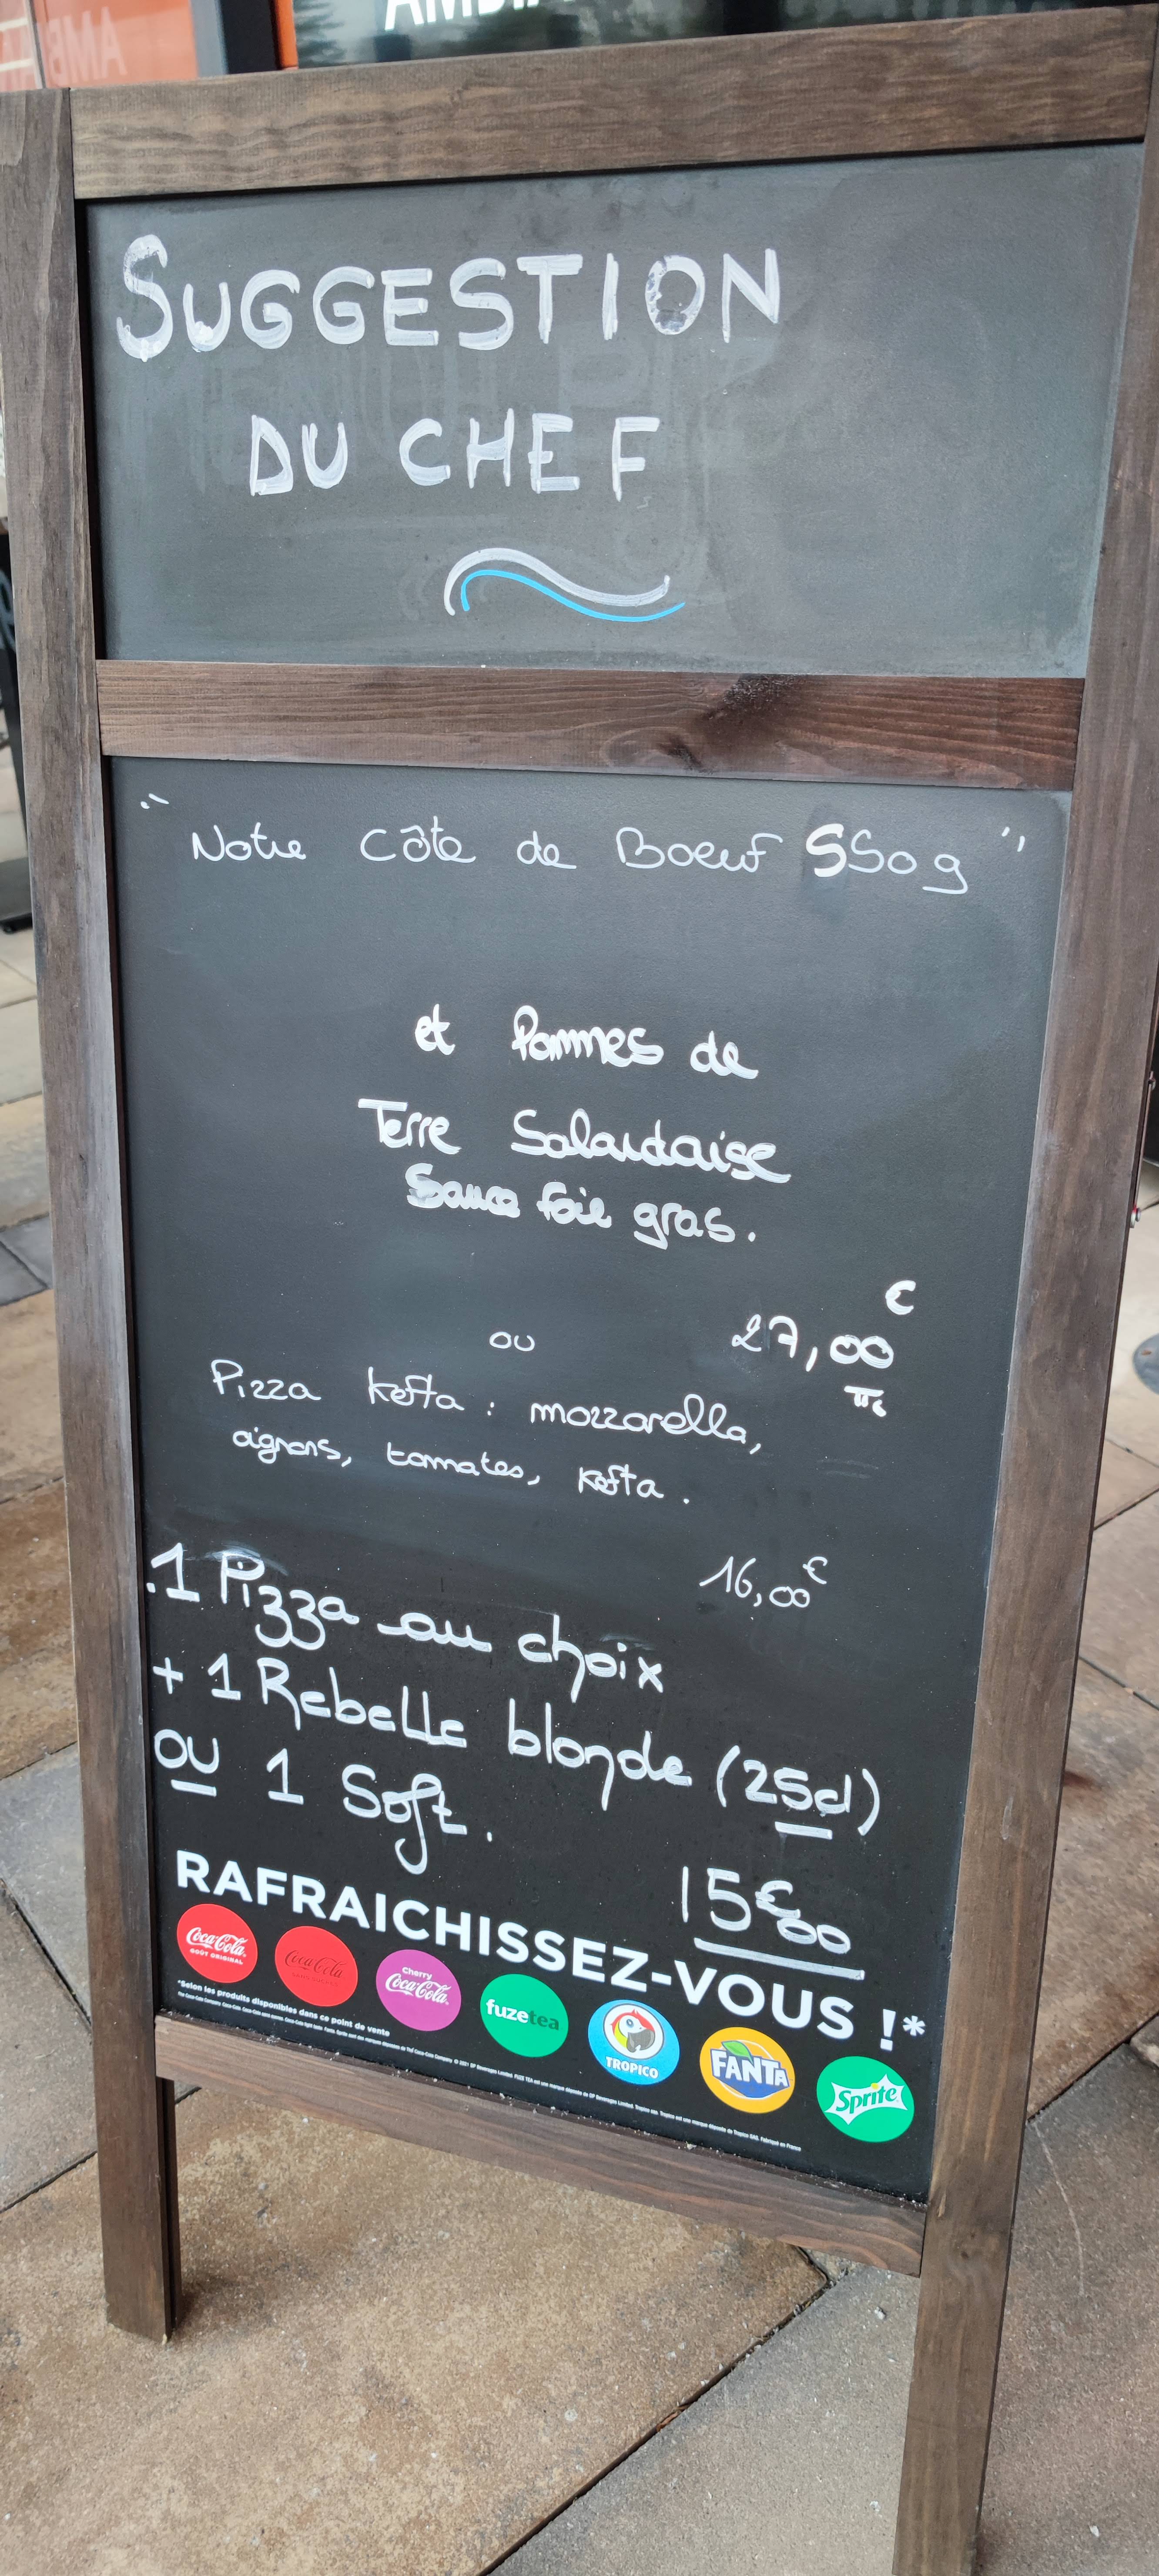 AMBIA
SUGGESTION
DU CHEF
"Notre Côte de Boeuf 550g"
et Pommes de
Terre Salardaise
Sauce foie gras.
27,00€
TTC
ou
Pizza kefta : mozzarella,
oignons, tomates, kefta.
16,00€
.1 Pizza au choix
+ 1 Rebelle blonde (25cl)
ou 1 Soft.
15€00
RAFRAICHISSEZ-VOUS !*
Coca-Cola GOÛT ORIGINAL
Coca-Cola
Cherry Coca-Cola
fuzetea
TROPICO
FANTA
Sprite
*Selon les produits disponibles dans ce point de vente